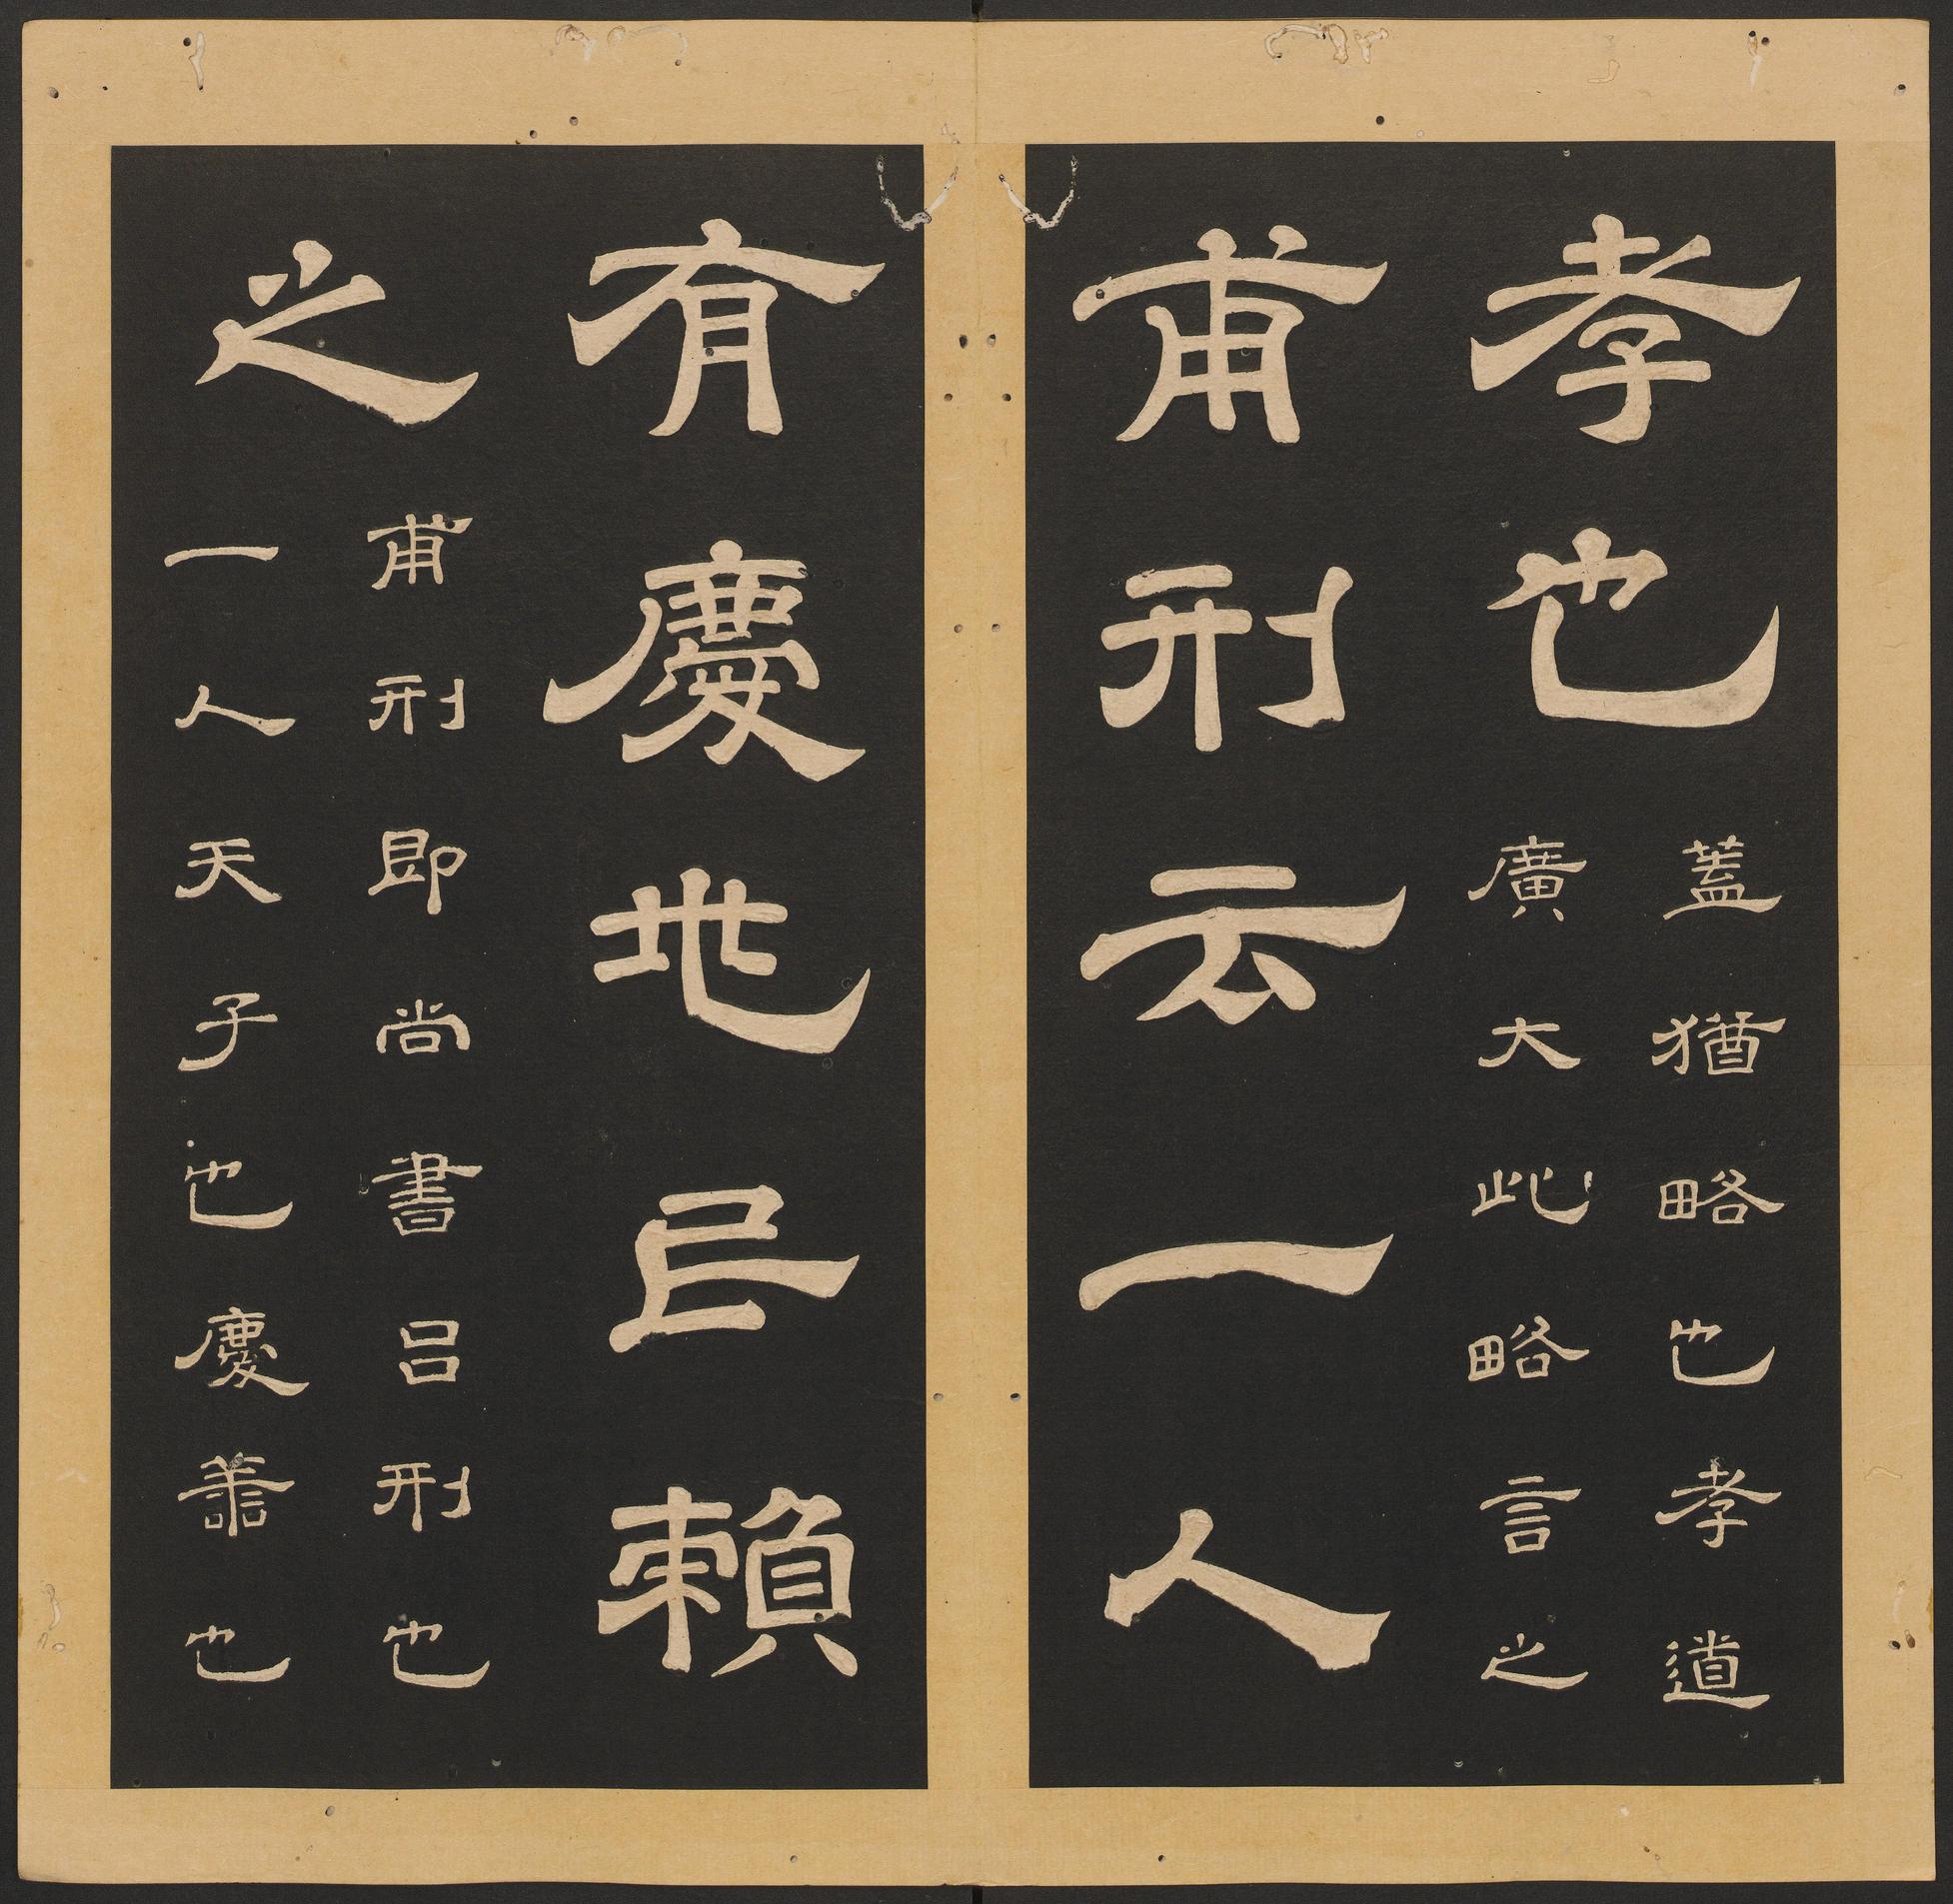 孝也
蓋猶略也孝道
廣大此略言之
甫刑云一人
有慶兆民賴
之
甫刑即尚書呂刑也
一人天子也慶善也